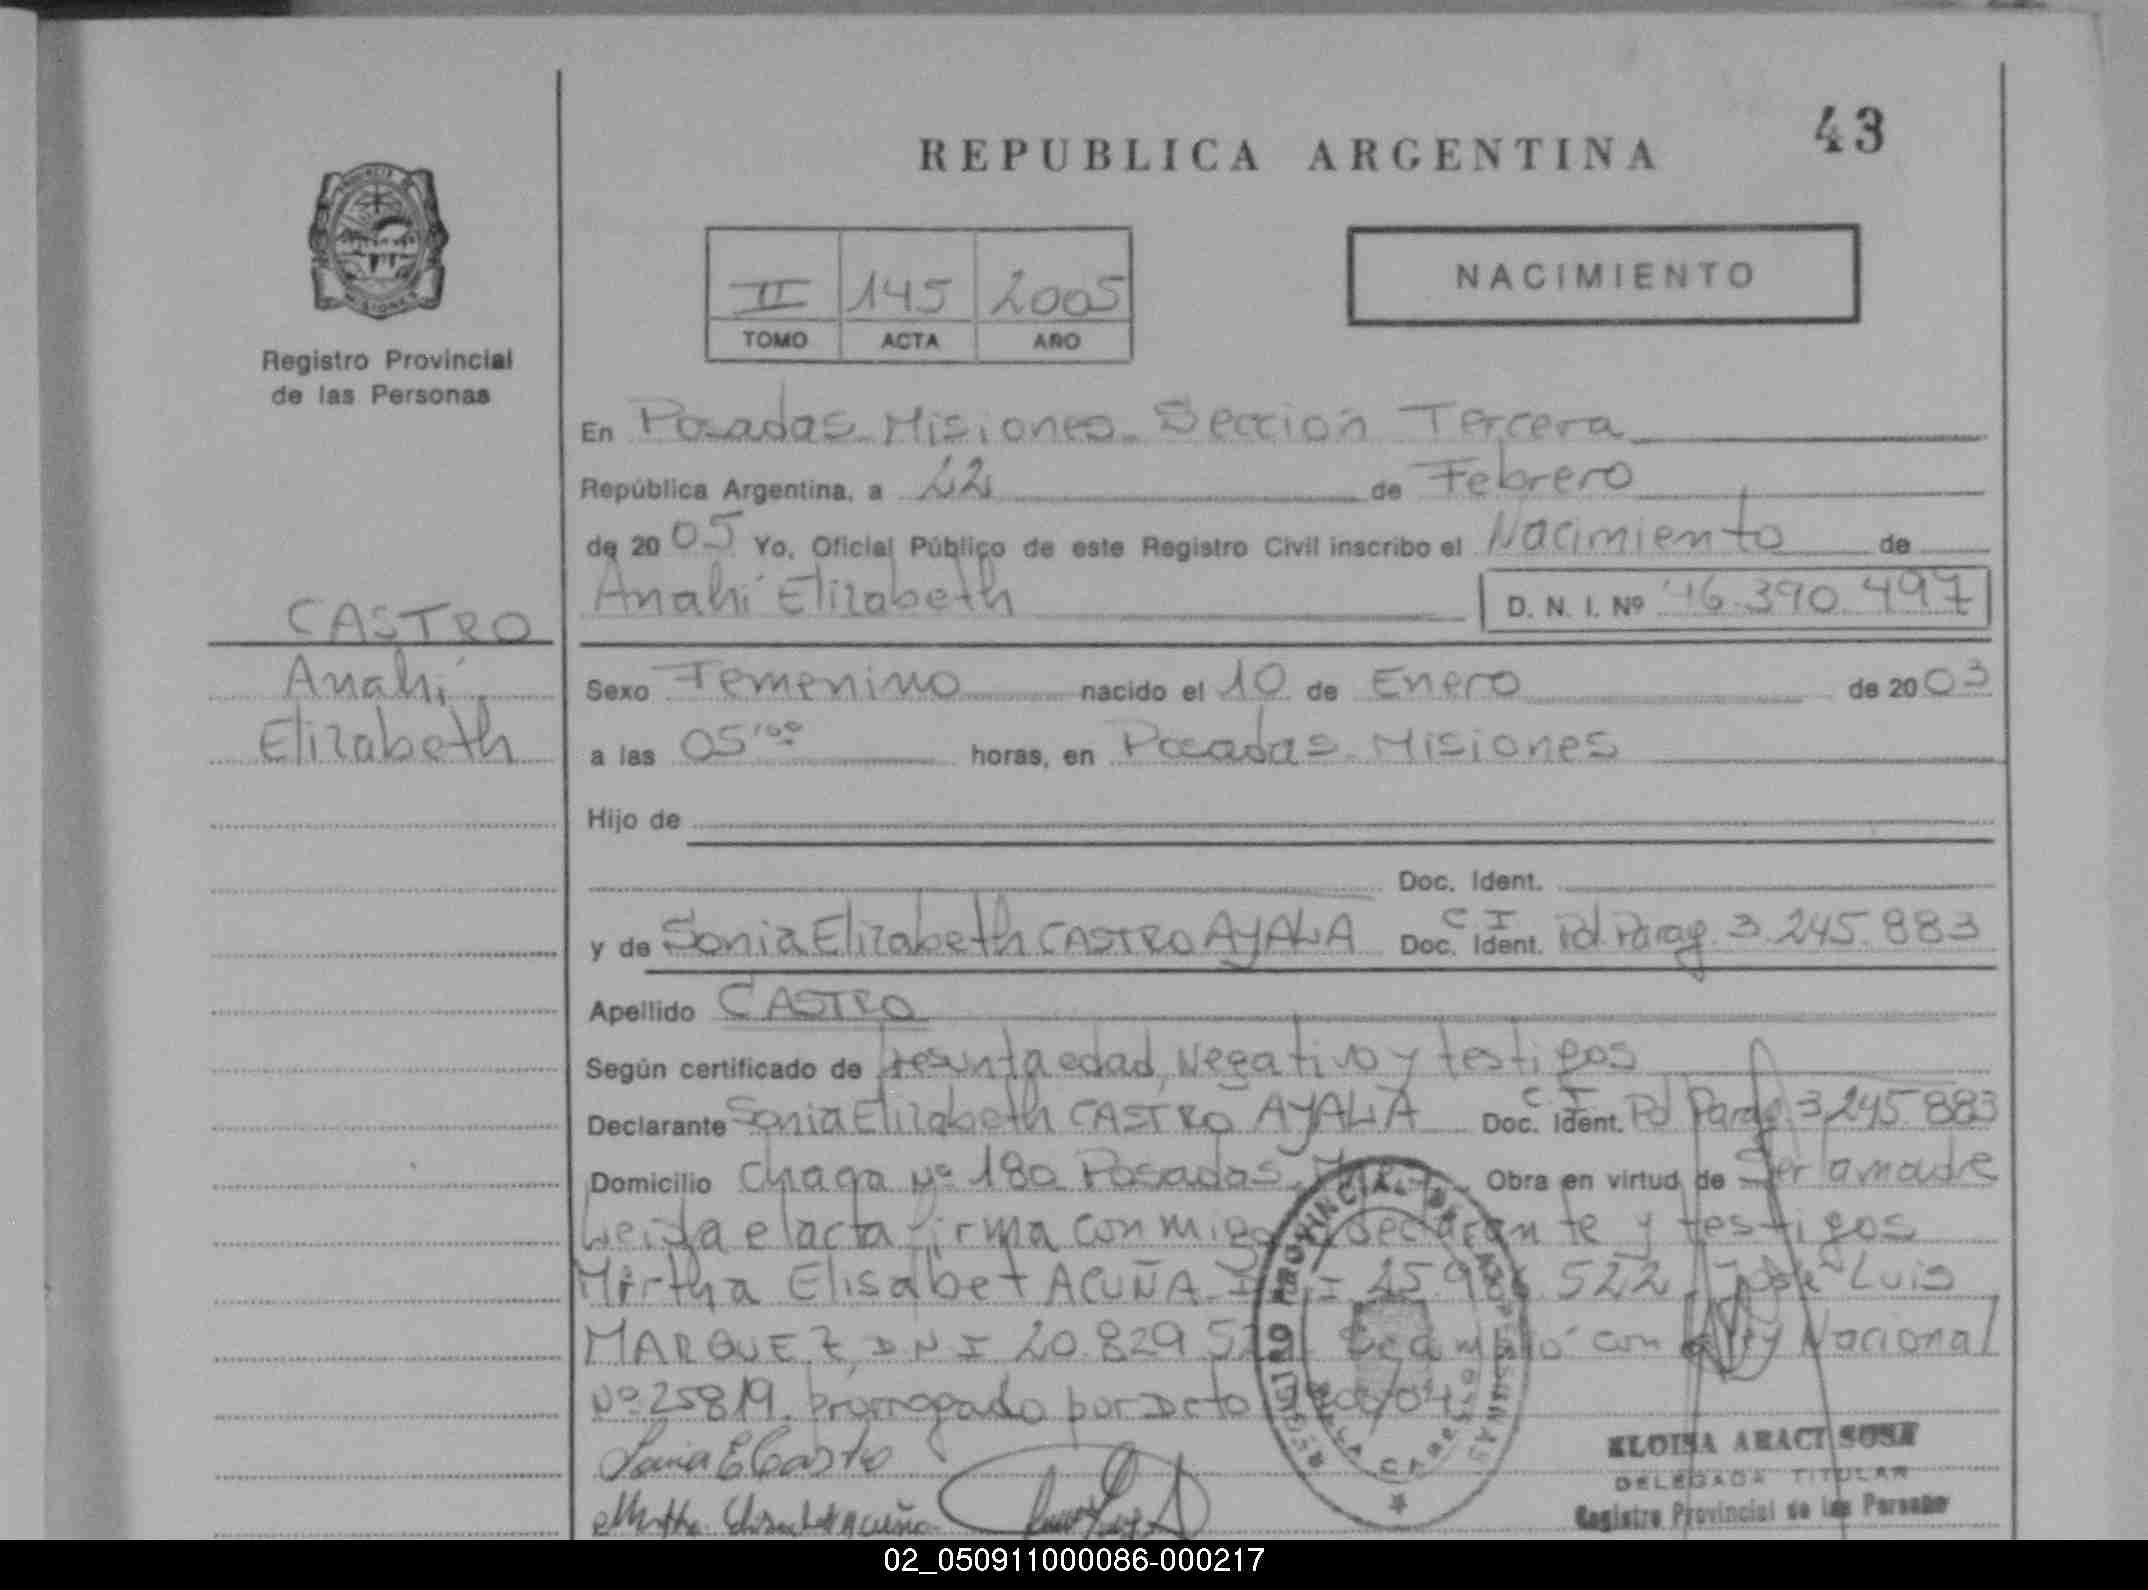 REPUBLICA ARGENTINA 43
II 145 2005
TOMO ACTA AÑO
NACIMIENTO
Registro Provincial
de las Personas
En Posadas Misiones Sección Tercera
República Argentina, a 22 de Febrero
de 2005 Yo, Oficial Público de este Registro Civil inscribo el Nacimiento de
Anahí Elizabeth D. N. I. Nº 46.390.497
CASTRO
Anahí
Elizabeth
Sexo Femenino nacido el 10 de Enero de 2003
a las 05'00 horas, en Posadas Misiones
Hijo de
Doc. Ident.
y de Sonia Elizabeth CASTRO AYALA Doc. Ident. C I Pol. Parag. 3.245.883
Apellido CASTRO
Según certificado de Presunta edad, Negativo y testigos
Declarante Sonia Elizabeth CASTRO AYALA Doc. Ident. C.I. Pol Parag. 3.245.883
Domicilio Chaga Nº 180 Posadas Obra en virtud de Ser la madre
Leida el acta firma conmigo declarante y testigos
Mirtha Elisabet ACUÑA 522 José Luis
MARQUEZ, DNI 20.829 con Ley Nacional
Nº 25819, prorrogado por Dcto
Sonia E Castro
Mirtha Elisabet Acuña
ELOISA ARACI SOSA
DELEGADA TITULAR
Registro Provincial de las Personas
02_050911000086-000217